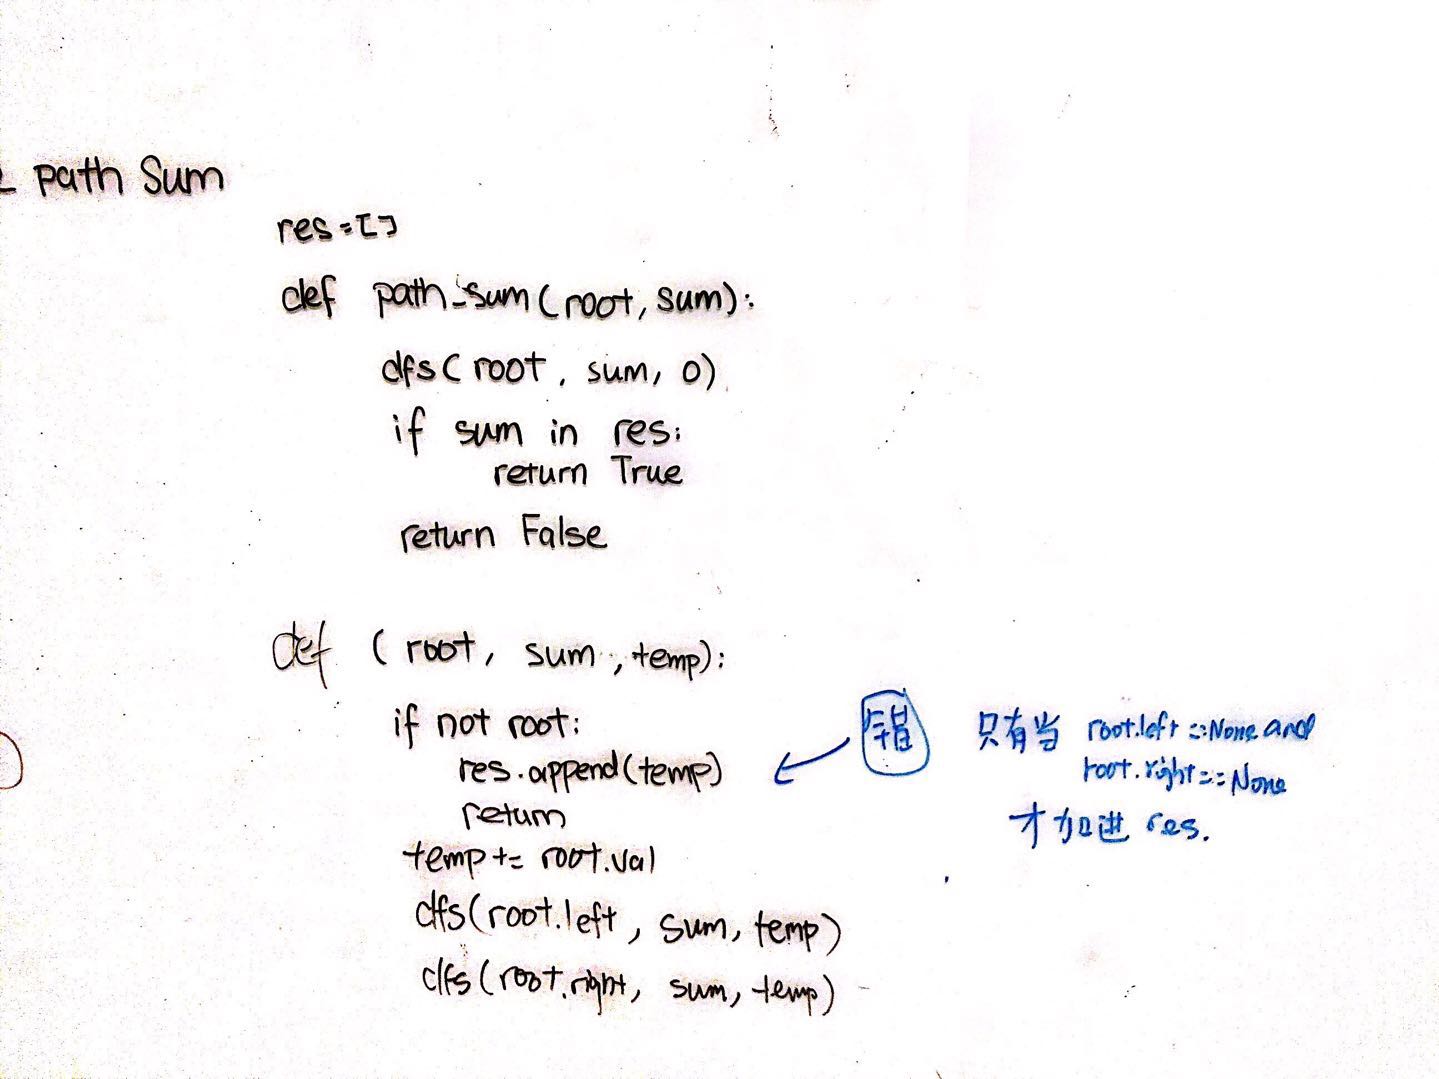 path Sum
res=[]
def path_sum(root, sum):
dfs(root, sum, 0)
if sum in res:
return True
return False
def (root, sum, temp):
if not root:
res.append(temp)
return
temp += root.val
dfs(root.left, sum, temp)
dfs(root.right, sum, temp)
错
只有当 root.left == None and
root.right == None
才加进 res.